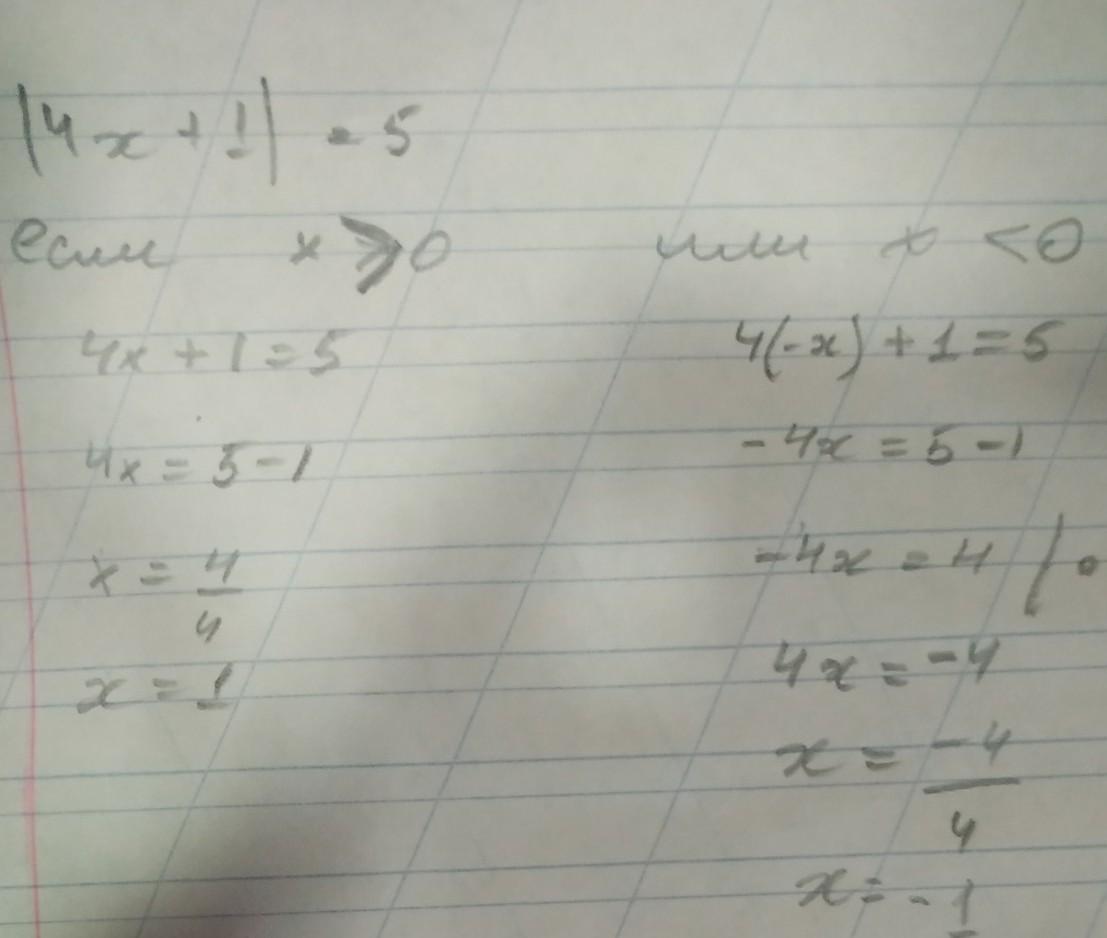 |4x + 1| = 5
если x ⩾ 0 или x < 0
4x + 1 = 5 4(-x) + 1 = 5
4x = 5 - 1 - 4x = 5 - 1
x = 4/4 - 4x = 4 |
x = 1 4x = -4
x = -4/4
x = - 1